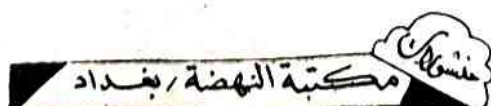 منشورات
مكتبة النهضة / بغداد